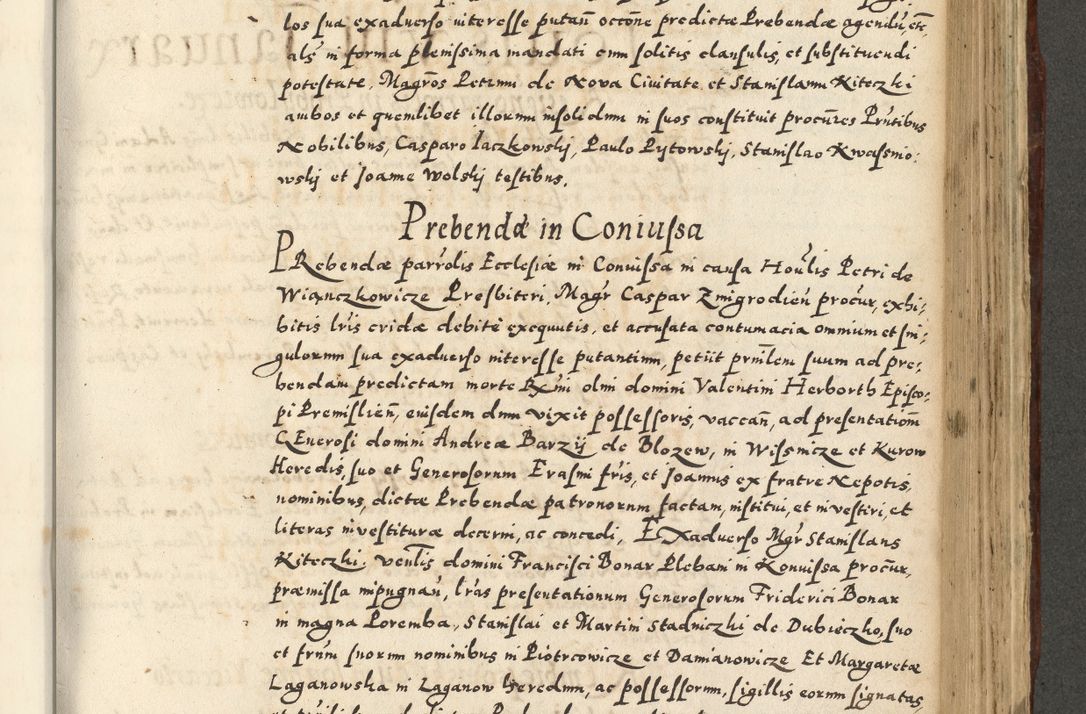 los sua exadverso interesse putan̄ occōne predictæ Prebendæ agendū, etc
als in forma plenissima mandati cum solitis clausulis, et substituendi
potestate, Magr̄os Petrum de Nova Civitate et Stanislaum Kiteczki
ambos et quemlibet illorum insolidum in suos constituit procūres Prn̄tibus
Nobilibus, Casparo Iaczkowskj, Paulo Pijtowskj, Stanislao Kwasnio:
wskj et Joanne Wolskj testibus.
Prebendæ in Coniussa
PRebendæ parr̄olis Ecclesiæ in Conuissa in causa Hon̄lis Petri de
Wianczkowicze Presbiteri, Magr Caspar Zmigrodien̄ procur, exhi:
bitis lr̄is cridæ debitè exequutis, et accusata contumacia omnium et sin:
gulorum sua exadverso interesse putantium, petiit prn̄lem suum ad pre:
bendam predictam morte Rx̄mi olim domini Valentini Herborth Episco:
pi Premislien̄, eiusdem dum vixit possessoris, vaccan̄, ad presentatiōm
GEnerosi domini Andreæ Barzij de Blozew, in Wissnicze et Kurow
Heredis, suo et Generosorum Erasmi fr̄is, et Joannis ex fratre Nepotis,
nominibus, dictæ Prebendæ patronorum factam, institui, et investiri, et
literas investituræ decerni, ac concedi, EXadverso Mgr Stanislaus
Kiteczki, ven̄lis domini Francisci Bonar Plebani in Konuissa procur,
præmissa inpugnan̄, lr̄as presentationum Generosorum Friderici Bonar
in magna Poremba, Stanislai et Martini Stadniczki de Dubieczko, suo
et fr̄um suorum nominibus in Piotrcowicze et Damianowicze Et Margaretæ
Laganowska in Laganow heredum, ac possessorum, sigillis eorum signatas,